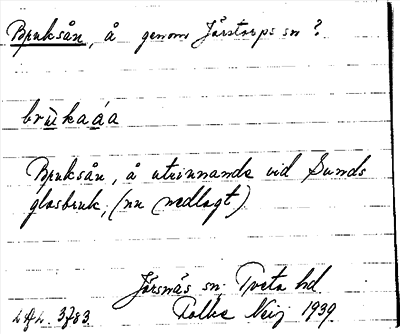 Bruksån, å genom Järstorps sn?
brùkaáa
Bruksån, å utrinnande vid Sunds
glasbruk, (nu nedlagt)
Järsnäs sn Tveta hd
3783 Folke 1939